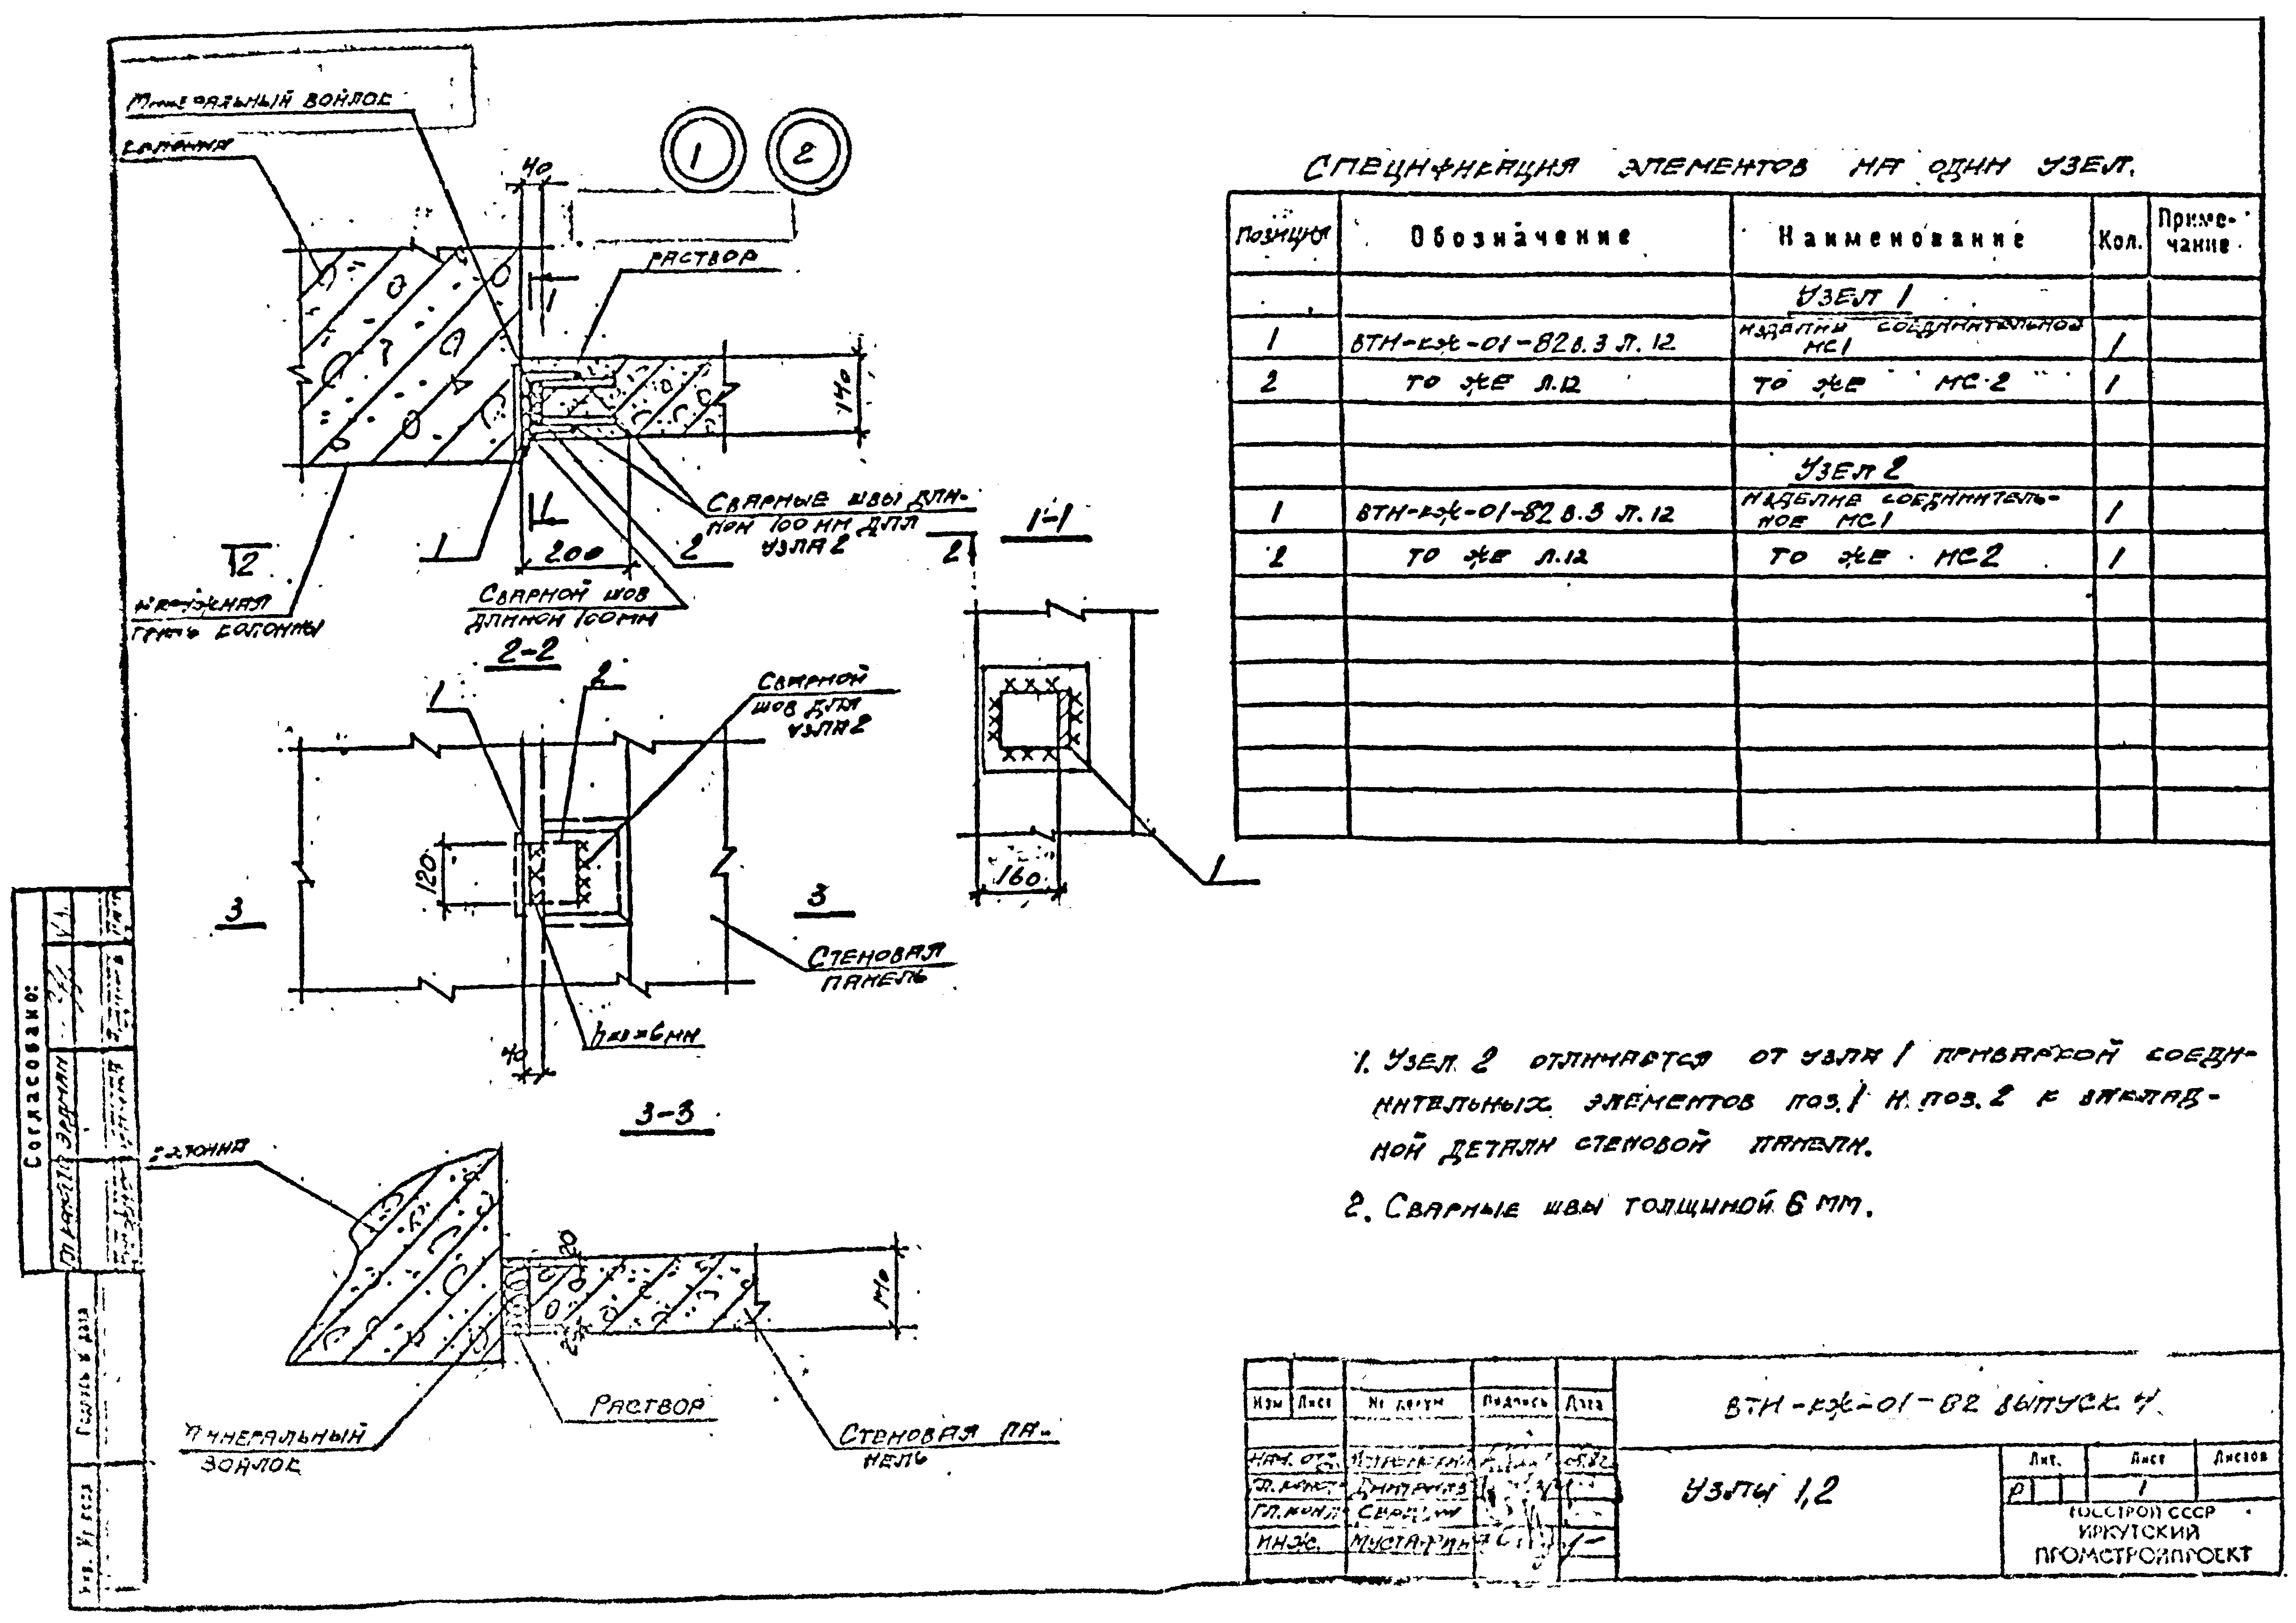 Минеральный войлок
колонна
40
1
2
раствор
1
140
Сварные швы дли-
ной 100 мм для
узла 2
1
1
2
200
2
2
Наружная
грань колонны
Сварной шов
длиной 100 мм
1-1
160
1
2-2
1
2
Сварной
шов для
узла 2
120
3
3
Стеновая
панель
40
hшв=6мм
3-3
колонна
20
140
Минеральный
войлок
Раствор
Стеновая па-
нель
Спецификация элементов на один узел.
Позиция Обозначение Наименование Кол. Приме-
чание
Узел 1
1 ВТН-КЖ-01-82 в.3 л.12 изделия соединительной МС1 1
2 то же л.12 то же МС-2 1
Узел 2
1 ВТН-КЖ-01-82 в.3 л.12 изделие соединитель-
ное МС1 1
2 то же л.12 то же МС2 1
1. Узел 2 отличается от узла 1 приваркой соеди-
нительных элементов поз.1 и поз.2 к заклад-
ной детали стеновой панели.
2. Сварные швы толщиной 6 мм.
Согласовано:
Эрдман
Подпись и дата
Изм Лист № докум Подпись Дата
Нач. отд.
Гл. конст.
Гл. конст.
Инж.
ВТН-КЖ-01-82 выпуск 4
Узлы 1,2
Лит. Лист Листов
Р 1
ГОССТРОЙ СССР
ИРКУТСКИЙ
ПРОМСТРОЙПРОЕКТ